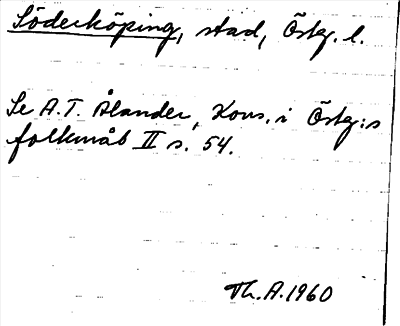 Söderköping, stad, Östg. l.
Se A.T. Ålander, Kons. i Östg:s
folkmål II s. 54.
Th.A.1960